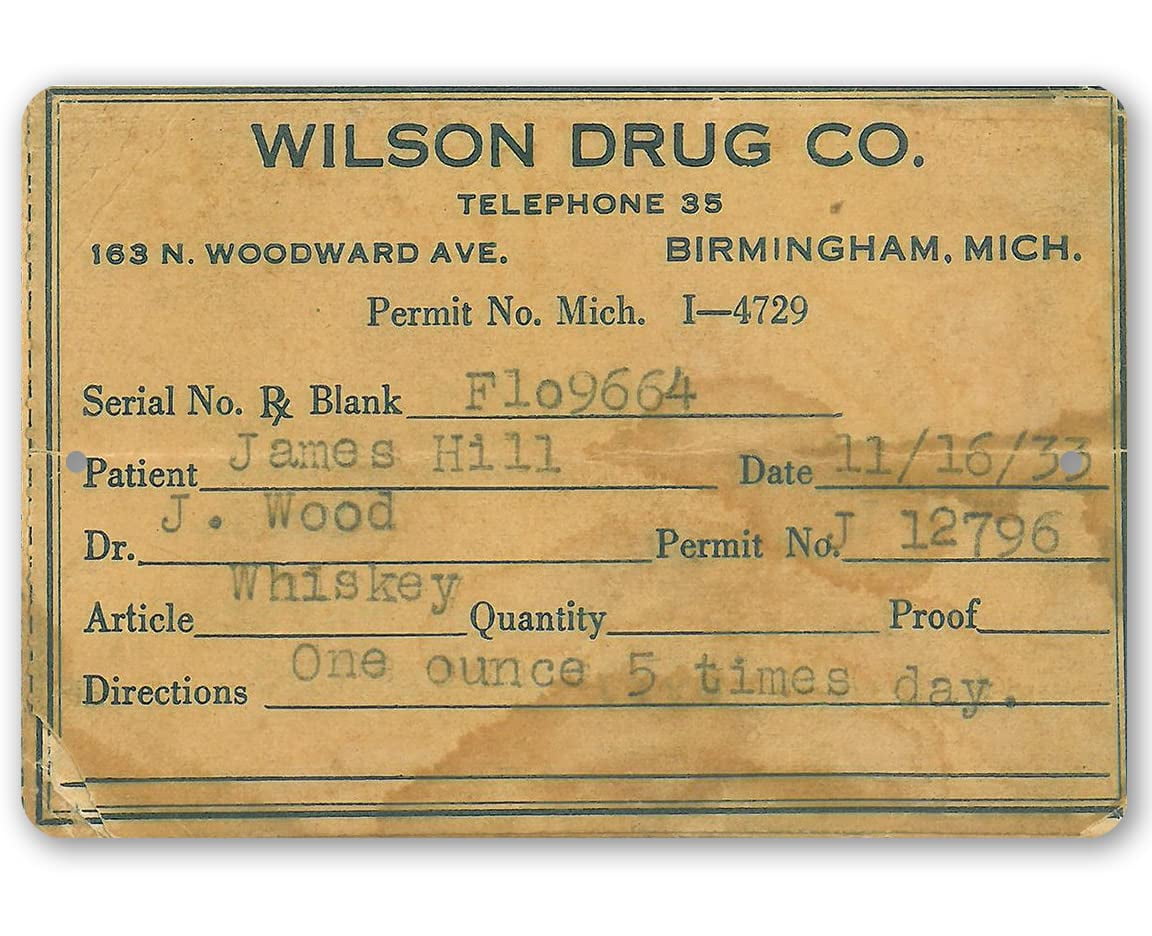 WILSON DRUG CO.
TELEPHONE 35
163 N. WOODWARD AVE. BIRMINGHAM, MICH.
Permit No. Mich. I—4729
Serial No. ℞ Blank Flo9664
Patient James Hill Date 11/16/33
Dr. J. Wood Permit No. J 12796
Article Whiskey Quantity Proof
Directions One ounce 5 times day.